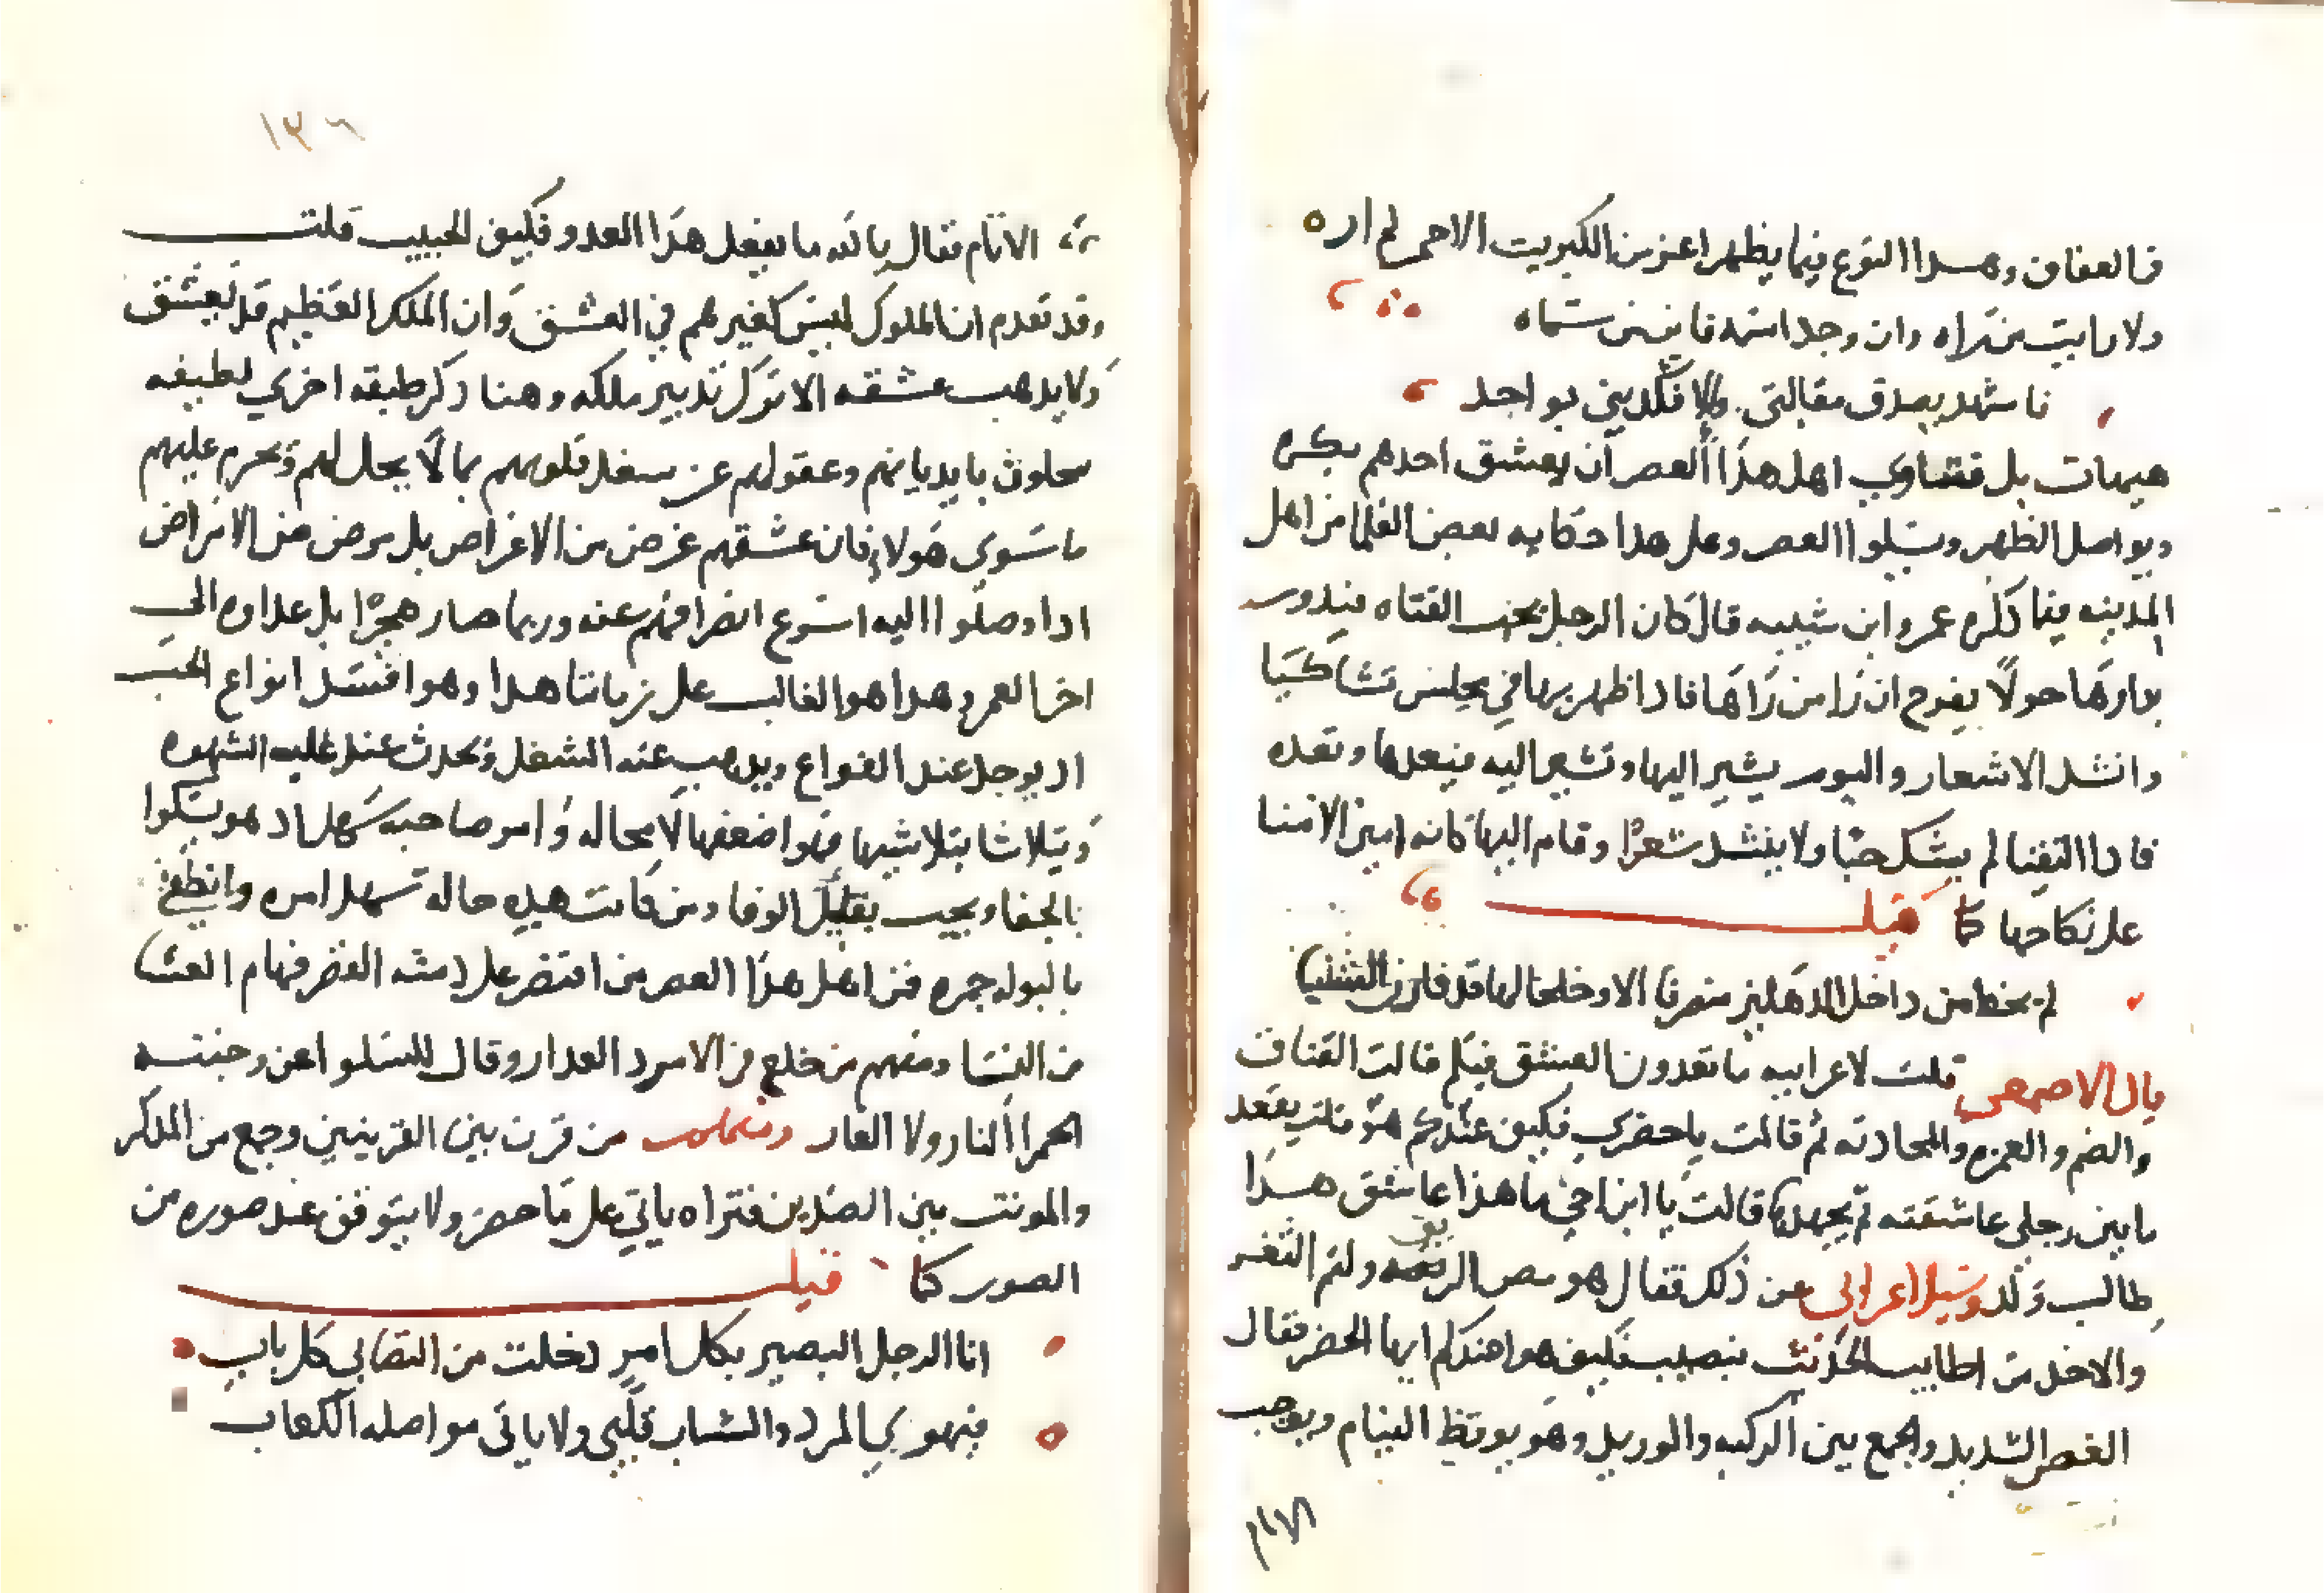 في العفاف وهذا النوع فيما يظهر اعز من الكبريت الاحمر لم اره
ولا رايت من راه وان وجد انه فاين من سماه
فاشهد بصدق مقالتي والا فكذبني بواحد
هيهات بل قصاري اهل هذا العصر ان يعشق احدهم بكره
ويواصل الظهر ويسلوا العصر وعلى هذا حكايه بعض العلما من اهل
المدينه فيما ذكره عمرو ابن شيبه قال كان الرجل يحب الفتاه فيدور
بدارها حولا يفرح ان را من راها فاذا ظفر بها في مجلس تشاكيا
وانشد الاشعار واليوم يشير اليها وتشير اليه فيعدها وتعده
فاذا التقيا لم يشك حبا ولا ينشد شعرا وقام اليها كانه امين الامنا
على نكاحها كما قيل
لم يخط من داخل الدهليز منصرفا الا وخلخالها قد قارن الشنفا
قال الاصمعي قلت لاعرابيه ما تعدون العشق فيكم قالت العناق
والضم والغمزه والمحادثه ثم قالت يا حضري فكيف عندكم هو قلت يقعد
ما بين رجلي عاشقته ثم يجهدها قالت يا ابن اخي ما هذا عاشق هذا
طالب ولد وسيل اعرابي عن ذلك فقال هو مص الريق ولثم الثغر
والاخذ من اطايب الحديث بنصيب فكيف هو عندكم ايها الحضر فقال
العفص الشديد والجمع بين الركبه والوريد وهو يوقظ النيام ويوجب
الاثام
١٣٦
الاثام فقال بالله ما يفعل هذا العدو فكيف الحبيب قلت
وقد تقدم ان الملوك ليس كغيرهم في العشق وان الملك العظيم قد يعشق
ولا يذهب عشقه الا ترك تدبير ملكه وهنا ذكر طبقه اخري لطيفه
بايديانهم وعقولهم عن شغل قلوبهم بما لا يحل لهم ويحرم عليهم
ما سوي هولاء فان عشقهم غرض من الاغراض بل مرض من الامراض
اذا وصلوا اليه اسرع انصرافهم عنه وربما صار هجرا بل عداوه الى
اخر العمر وهذا هو الغالب على زماننا هذا وهو افسد انواع الحب
اذ يوجد عند الفراغ ويذهب عند الشغل ويحدث عند غلبه الشهوه
ويتلاشا بتلاشيها فهو اضعفها لا محاله وامر صاحبه سهل اذ هو يشكوا
بالجفا ويحب بقليل الوفا ومن كانت هذه حاله تسهل امره وانطفئ
بالبول جمره فمن اهل هذا العصر من اقتصر على رشه الثغر فهام العشا
من النسا ومنهم من خلع في الامرد العذار وقال للسلوا عن وجنته
الحمرا النار ولا العار ومنهم من قرن بين القرينين وجمع من المذكر
والمونث بين الضدين فتراه ياتي على ما حضر ولا يتوقف عند صوره من
الصور كما قيل
انا الرجل البصير بكل امر دخلت من التصابي كل باب
فيهوي المرد والشباب قلبي ولا يابى مواصله الكعاب